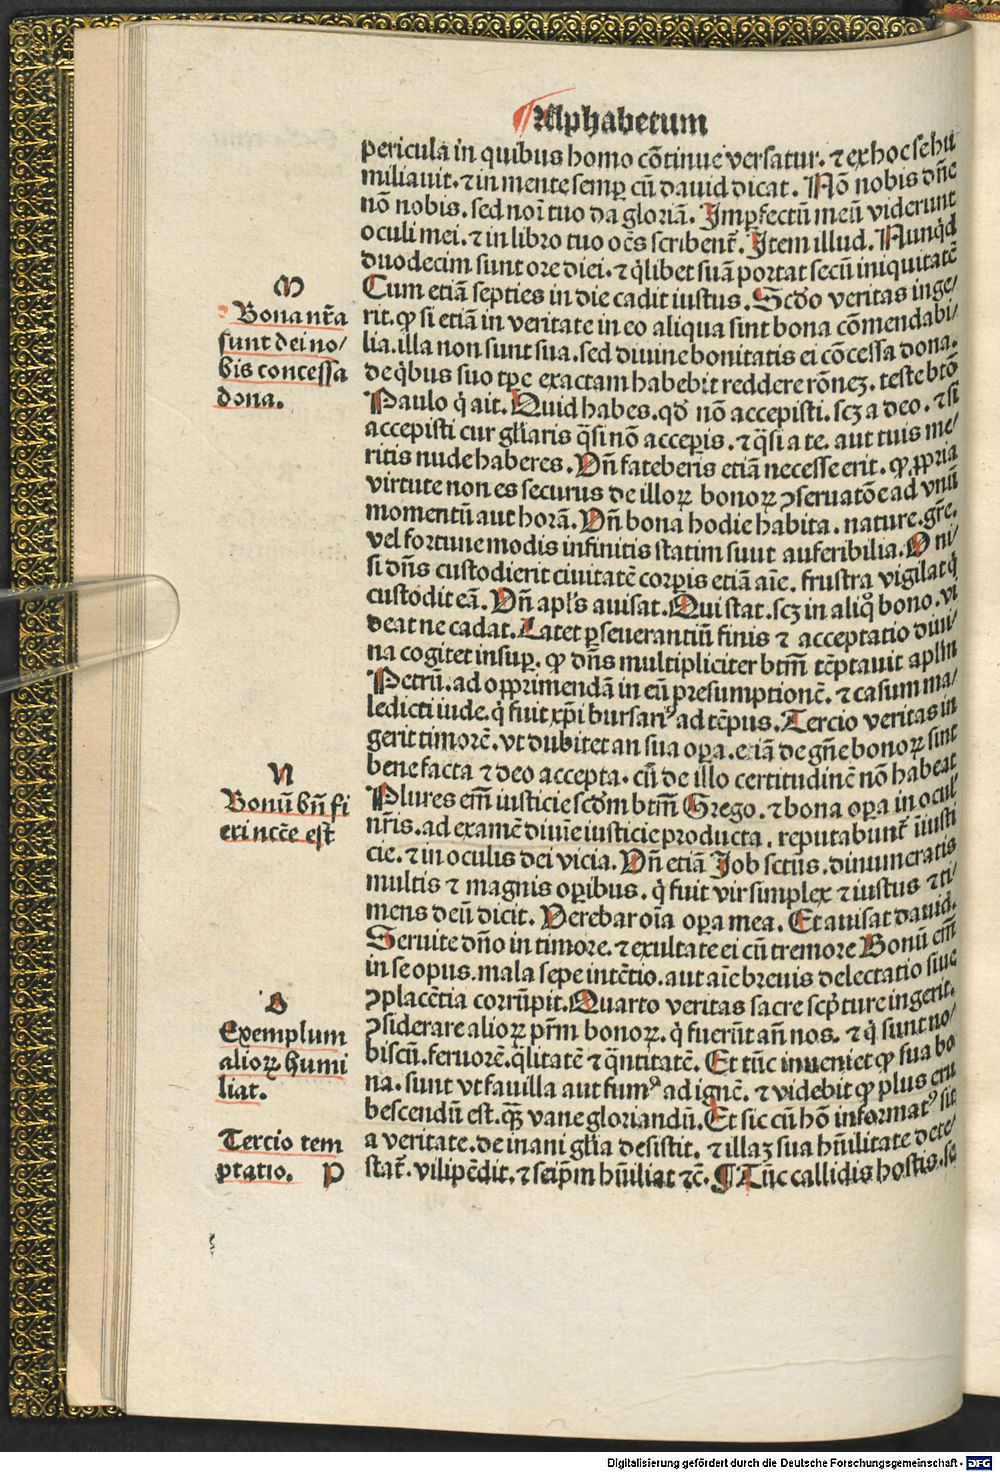 Alphabetum
pericula in quibus homo cōtinue versatur. ⁊ ex hoc se hu
miliauit. ⁊ in mente semꝑ cū dauid dicat. Nō nobis dn̄e
nō nobis. sed noi̅ tuo da gloriā. Imꝑfectū meū viderunt
oculi mei. ⁊ in libro tuo oēs scribent̄. Item illud. Nunq̇d
duodecim sunt ore diei. ⁊ q̇libet suā portat secū iniquitatē
Cum etiā septies in die cadit iustus. Scd̄o veritas inge/
rit. ꝙ si etiā in veritate in eo aliqua sint bona cōmendabi/
lia. illa non sunt sua. sed diuine bonitatis ei cōcessa dona.
de q̇bus suo tꝑe exactam habebit reddere rōneꝫ. teste btō
Paulo q̇ ait. Quid habes. qd̄ nō accepisti. scꝫ a deo. ⁊ si
accepisti cur gl̄iaris q̄si nō acceꝑis. ⁊ q̄si a te. aut tuis me/
ritis nude haberes. Vn̄ fateberis etiā necesse erit. ꝙ ꝓpria
virtute non es securus de illoꝝ bonoꝝ ꝯseruatōe ad vnū
momentū aut horā. Vn̄ bona hodie habita. nature. gr̄e.
vel fortune modis infinitis statim suut auferibilia. O ni/
si dn̄s custodierit ciuitatē corꝑis etiā aīe. frustra vigilat q̇
custodit eā. Vn̄ apl̄s auisat. Qui stat. scꝫ in aliq̊ bono. vi
deat ne cadat. Latet ꝑseuerantiū finis ⁊ acceptatio diui/
na cogitet insuꝑ. ꝙ dn̄s multipliciter btm̄ tēptauit apl̄m
Petrū. ad opprimendā in eū presumptionē. ⁊ casum ma/
ledicti iude. q̇ fuit xp̄i bursariꝰ ad tēpus. Tercio veritas in
gerit timorē. vt dubitet an sua oꝑa. etiā de gn̄e bonoꝝ sint
bene facta ⁊ deo accepta. cū de illo certitudinē nō habeat
Plures em̄ iusticie scd̄m btm̄ Grego. ⁊ bona oꝑa in ocul̄
nr̄is. ad examē diuīe iusticie producta. reputabunt̄ īiusti
cie. ⁊ in oculis dei vicia. Vn̄ etiā Job sctūs. dinumeratis
multis ⁊ magnis oꝑibus. q̇ fuit vir simplex ⁊ iustus ⁊ ti/
mens deū dicit. Verebar oīa oꝑa mea. Et auisat dauid.
Seruite dn̄o in timore. ⁊ exultate ei cū tremore Bonū em̄
in se opus. mala sepe intētio. aut aīe breuis delectatio siue
ꝯplacētia corrūpit. Quarto veritas sacre scp̄ture ingerit.
ꝯsiderare alioꝝ pr̄m bonoꝝ. q̇ fuerūt an̄ nos. ⁊ q̇ sunt no/
biscū. feruorē. q̄litatē ⁊ q̄ntitatē. Et tūc inueniet ꝙ sua bo
na. sunt vt fauilla aut fumꝰ ad ignē. ⁊ videbit ꝙ plus eru
bescendū est. qꝫ̄ vane gloriandū. Et sic cū hō informatꝰ sit
a veritate. de inani gl̄ia desistit. ⁊ illaꝫ sua hūilitate dete/
stat̄. vilipēdit. ⁊ seip̄m hūiliat ⁊c. ¶ Tūc callidis hostis. se
M
Bona nr̄a
sunt dei no/
bis concessa
dona.
N
Bonū bn̄ fi
eri ncc̄e est
O
Exemplum
alioꝝ humi
liat.
Tercio tem
ptatio. P
Digitalisierung gefördert durch die Deutsche Forschungsgemeinschaft - DFG